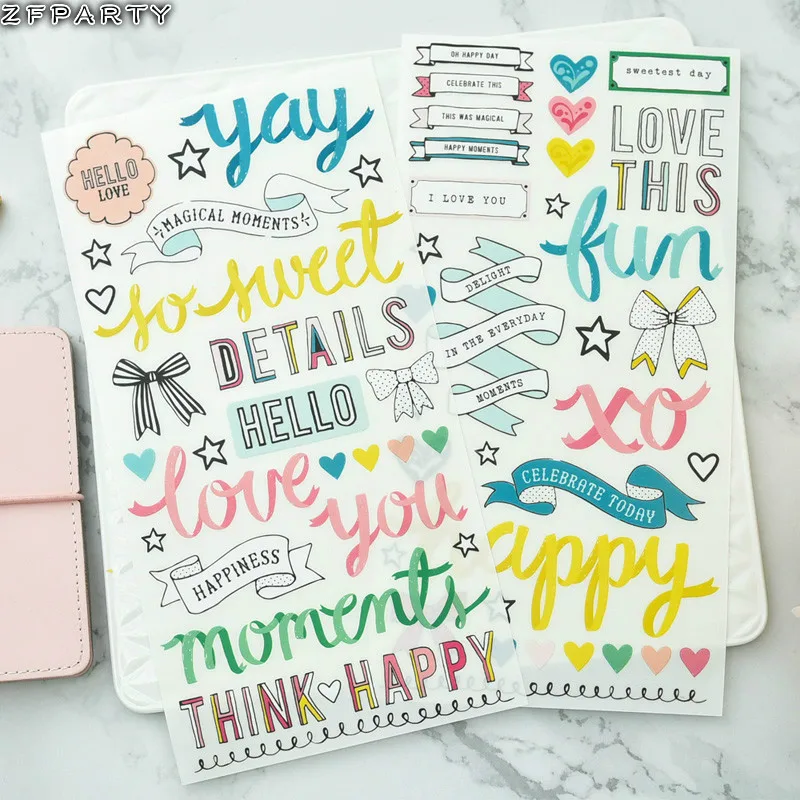 ZFPARTY
yay
HELLO
LOVE
MAGICAL MOMENTS
so sweet
DETAILS
HELLO
love
you
HAPPINESS
moments
THINK HAPPY
OH HAPPY DAY
CELEBRATE THIS
THIS WAS MAGICAL
HAPPY MOMENTS
I LOVE YOU
sweetest day
LOVE
THIS
fun
DELIGHT
IN THE EVERYDAY
MOMENTS
xo
CELEBRATE TODAY
appy